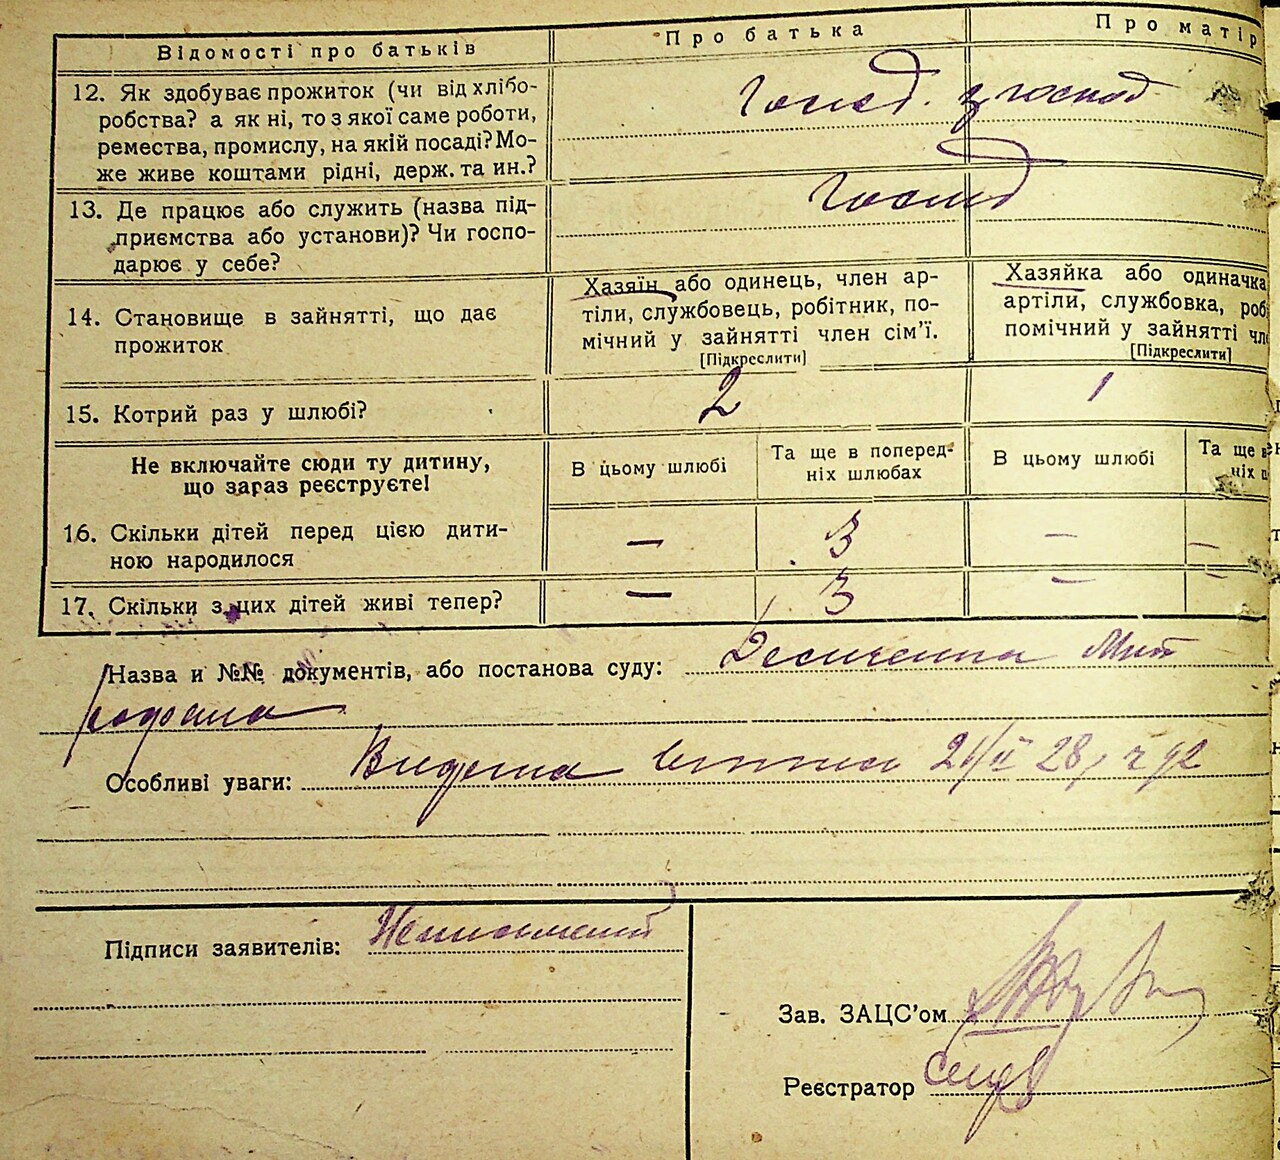 Відомості про батьків
Про батька
Про матір
12. Як здобуває прожиток (чи від хлібо-
робства? а як ні, то з якої саме роботи,
ремества, промислу, на якій посаді? Мо-
же живе коштами рідні, держ. та ин.?
Госпд. з господ
13. Де працює або служить (назва під-
приємства або установи)? Чи госпо-
дарює у себе?
Господ
14. Становище в зайнятті, що дає
прожиток
Хазяїн або одинець, член ар-
тіли, службовець, робітник, по-
мічний у зайнятті член сім'ї.
[Підкреслити]
Хазяйка або одиначка
артіли, службовка, роб
помічний у зайнятті чл
[Підкреслити]
15. Котрий раз у шлюбі?
2
1
Не включайте сюди ту дитину,
що зараз реєструєте!
В цьому шлюбі
Та ще в поперед-
ніх шлюбах
В цьому шлюбі
Та ще в
ніх ш
16. Скільки дітей перед цією дити-
ною народилося
— 3 — —
17. Скільки з цих дітей живі тепер?
— 3 — —
Назва и №№ документів, або постанова суду:
Особливі уваги: Видана 28, ч 92
Підписи заявителів: Неписьмений
Зав. ЗАЦС'ом
Реєстратор